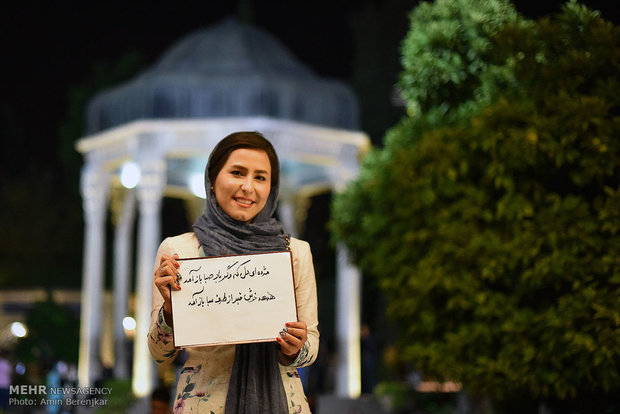 مژده ای دل که دگر باد صبا باز آمد
هدهد خوش خبر از طرف سبا باز آمد
MEHR NEWSAGENCY
Photo: Amin Berenjkar